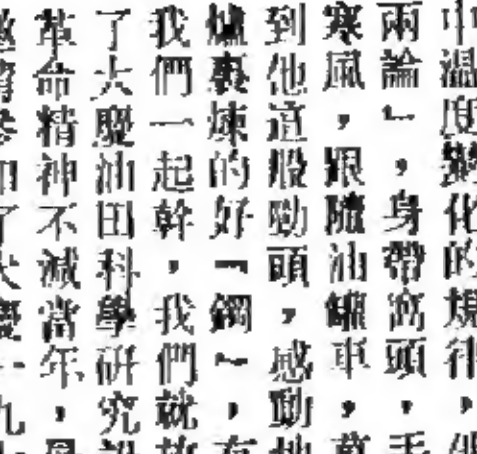 中温度變化的規律，
兩論」，身帶窩頭，
寒風，跟隨油罐車，
到他這般勁頭，感動
爐裏煉的好「鋼」，
我們一起幹，我們就
了大慶油田科學研究
革命精神不減當年，